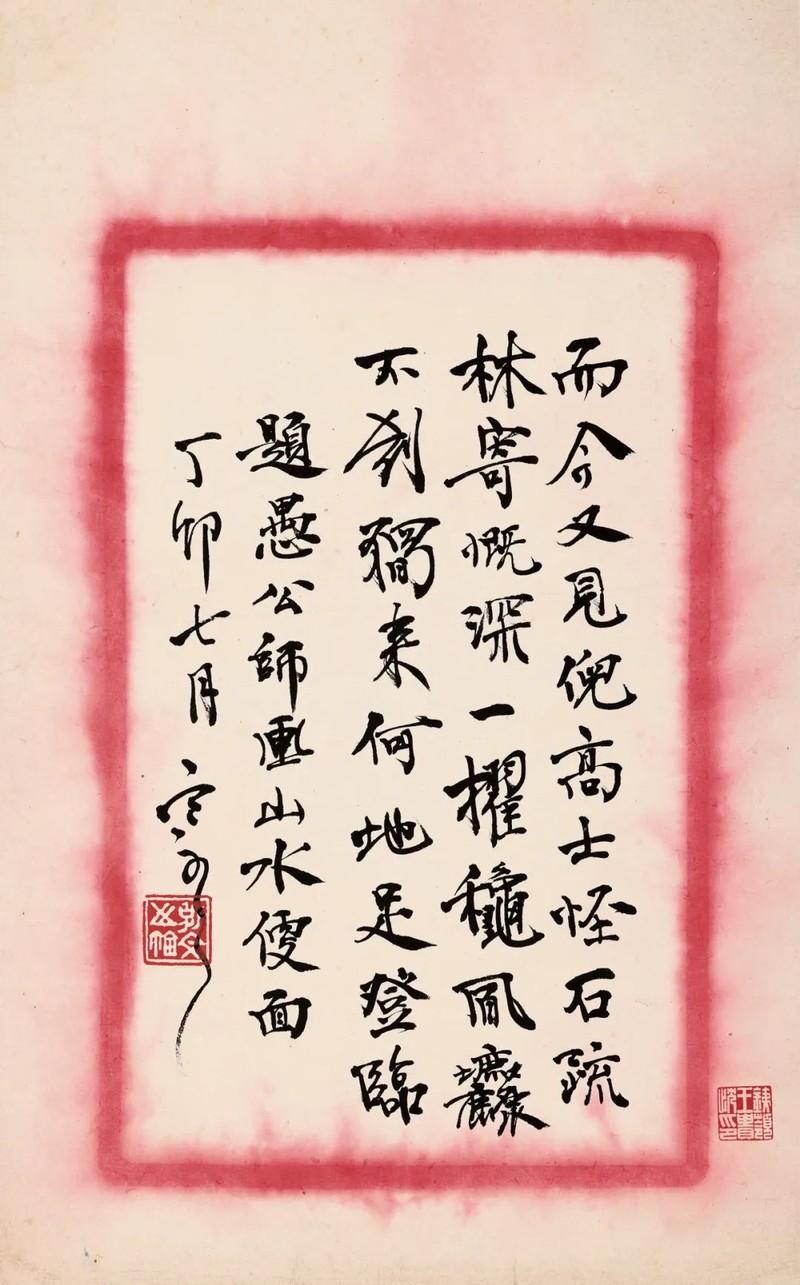 而今又見倪高士怪石疏
林寄慨深一擢龝風塵
不到獨来何地足登臨
題愚公師畫山水便面
丁卯七月